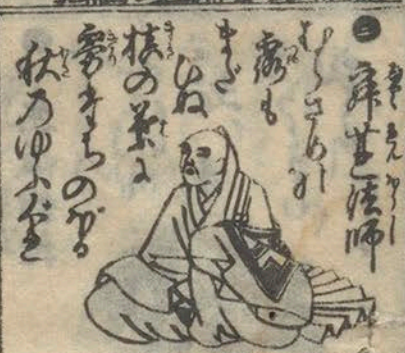 寂蓮法師
むらさめの
露も
まだ
ひぬ
槙の葉に
霧たちのぼる
秋のゆふぐれ